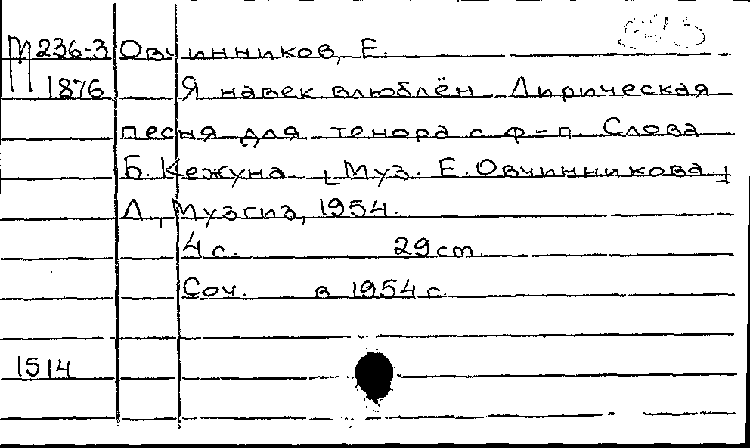 М 236-3 Овчинников, Е.
1876 Я навек влюблён Лирическая
песня для тенора с ф-п. Слова
Б. Кежуна [Муз. Е. Овчинникова]
Л., Музгиз, 1954.
4 с. 29 cm
Соч. в 1954 г.
1514